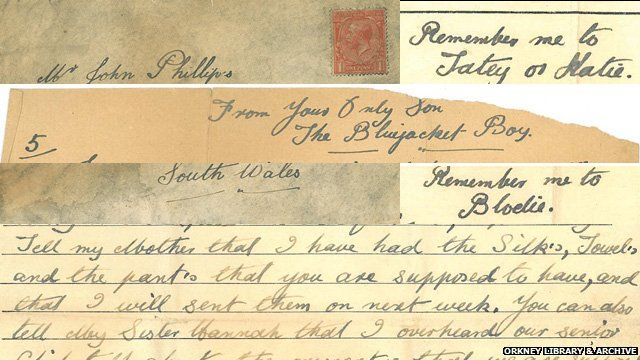 Mr John Phillips
Remember me to
Tatey or Katie.
From Your Only Son
The Bluejacket Boy.
5
South Wales
Remember me to
Blodie.
Tell my Mother that I have had the Silks, Towels
and the pants that you are supposed to have, and
that I will sent them on next week. You can also
tell My Sister Hannah that I overheard our senior
ORKNEY LIBRARY & ARCHIVE